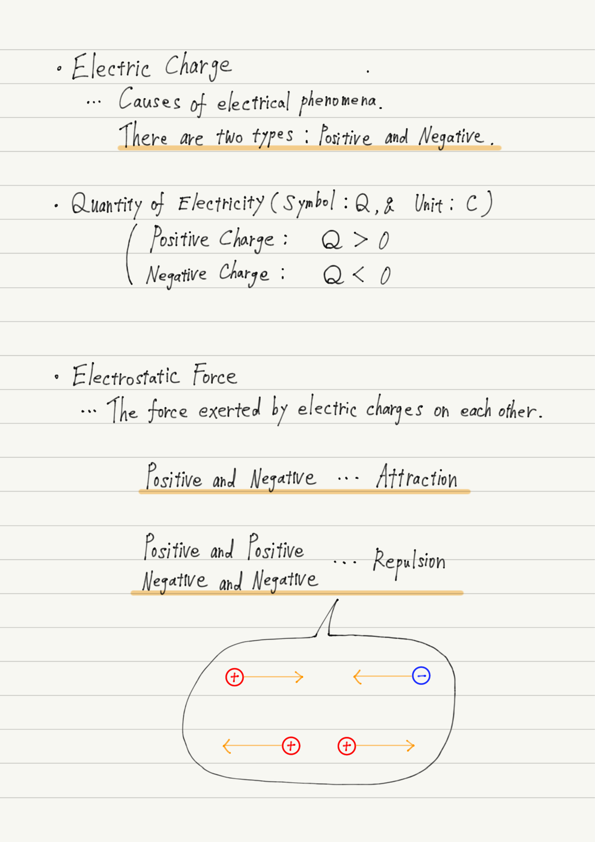 • Electric Charge
... Causes of electrical phenomena.
There are two types : Positive and Negative.
• Quantity of Electricity ( Symbol : Q, & Unit : C )
Positive Charge : Q > 0
Negative Charge : Q < 0
• Electrostatic Force
... The force exerted by electric charges on each other.
Positive and Negative ... Attraction
Positive and Positive
Negative and Negative ... Repulsion
+ −
+ +